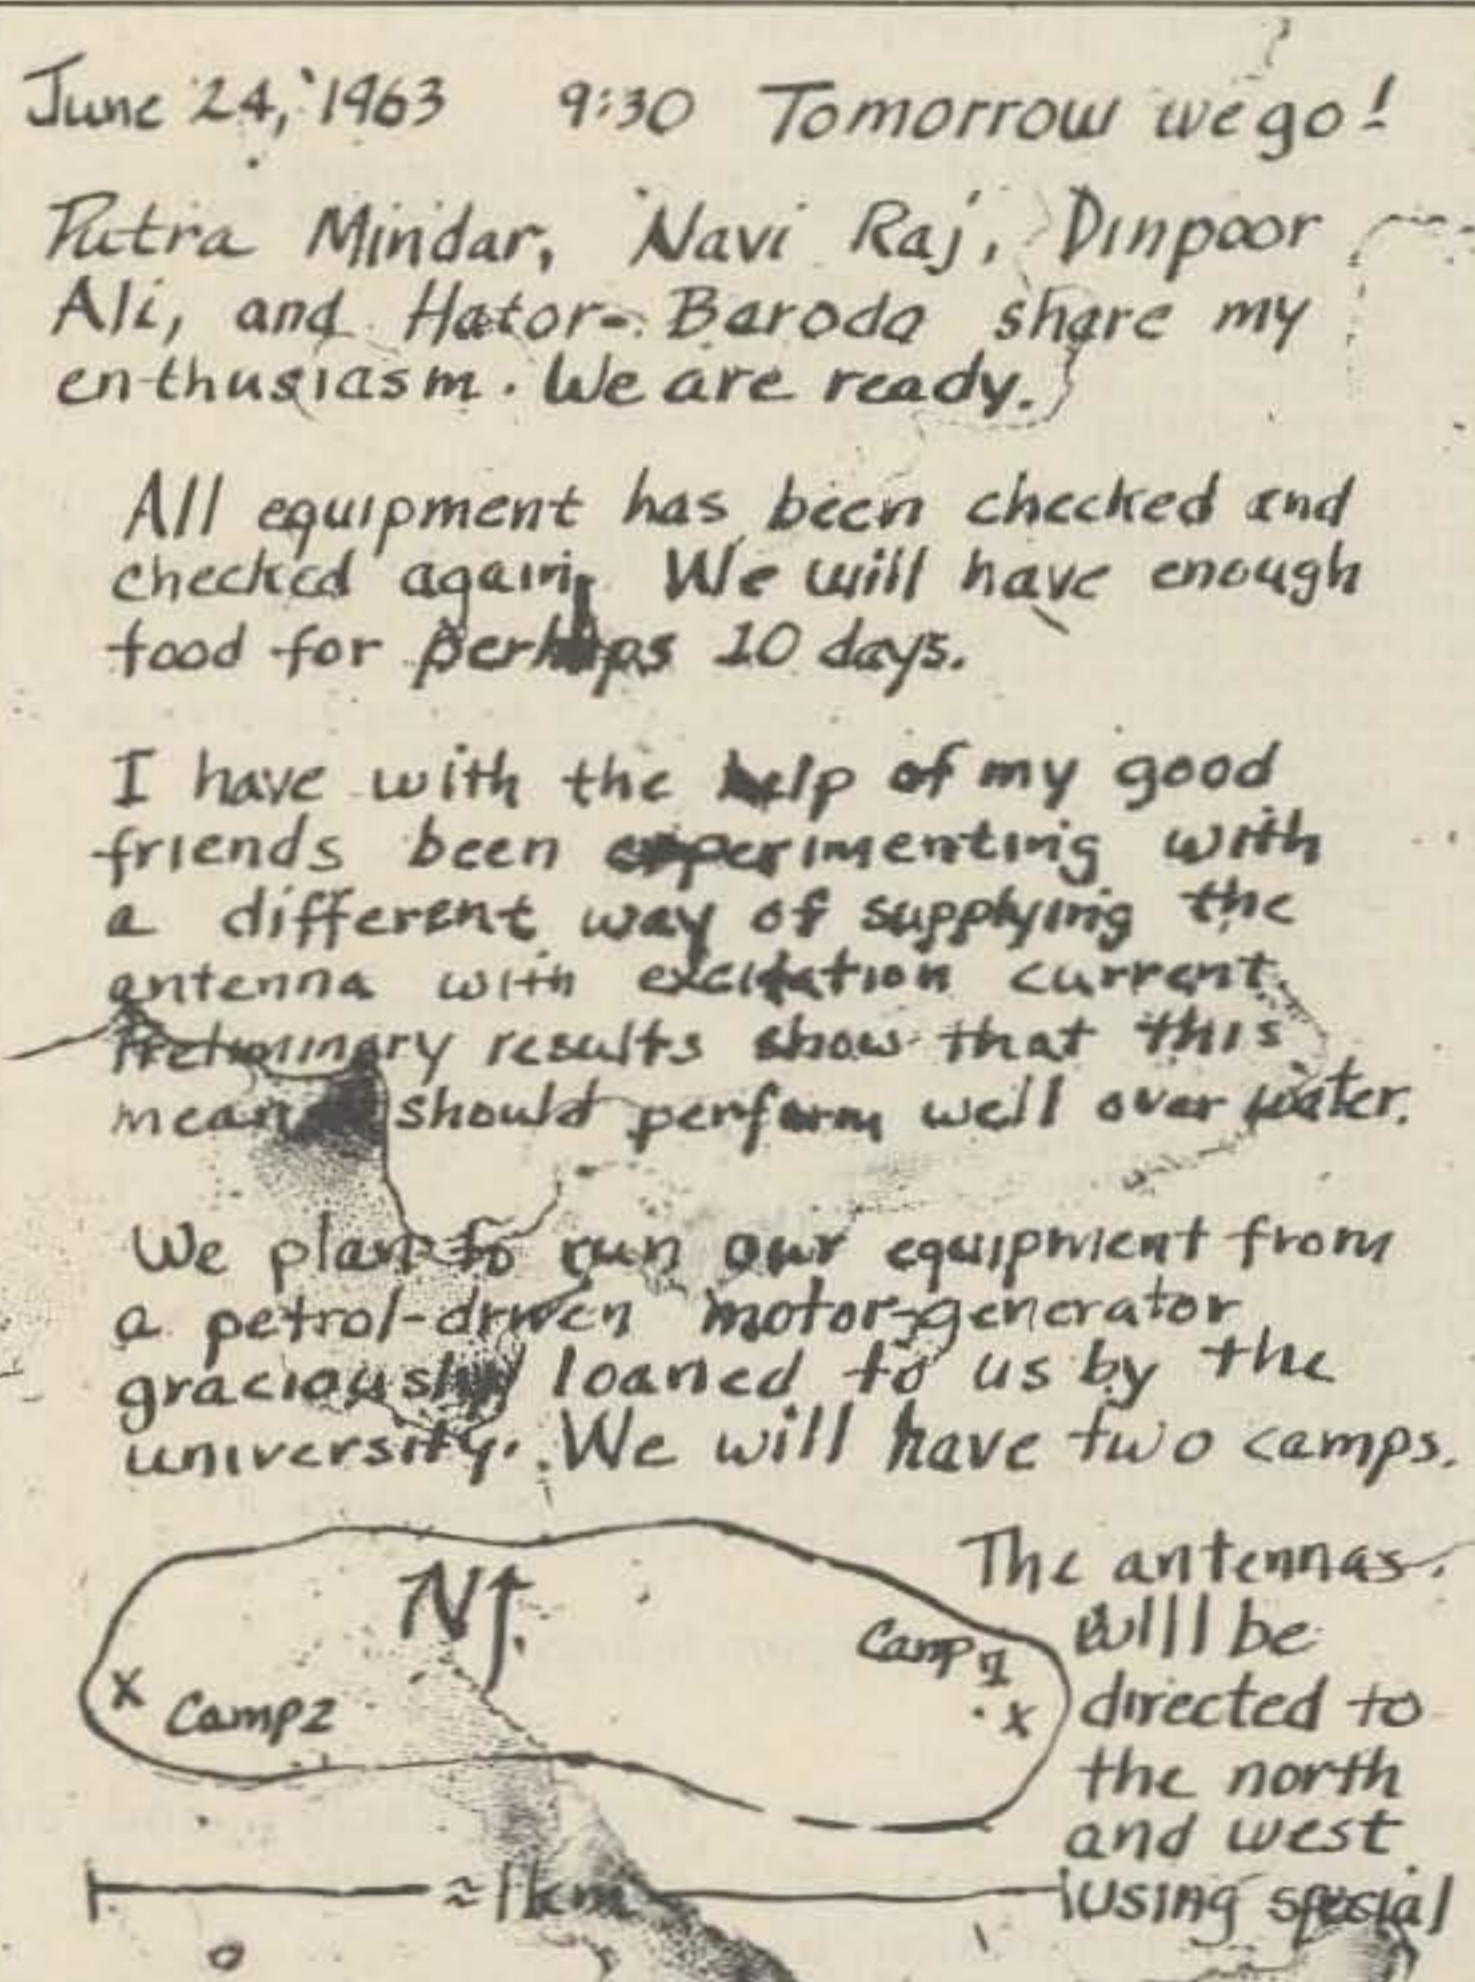 June 24, 1963 9:30 Tomorrow we go!
Putra Mindar, Navi Raj, Dinpoor
Ali, and Hator-Baroda share my
enthusiasm. We are ready.
All equipment has been checked and
checked again. We will have enough
food for perhaps 10 days.
I have with the help of my good
friends been experimenting with
a different way of supplying the
antenna with excitation current.
Preliminary results show that this
means should perform well over water.
We plan to run our equipment from
a petrol-driven motor-generator
graciously loaned to us by the
university. We will have two camps.
The antennas
will be
directed to
the north
and west
using special
N
Camp 1
x
x Camp 2
≈1km